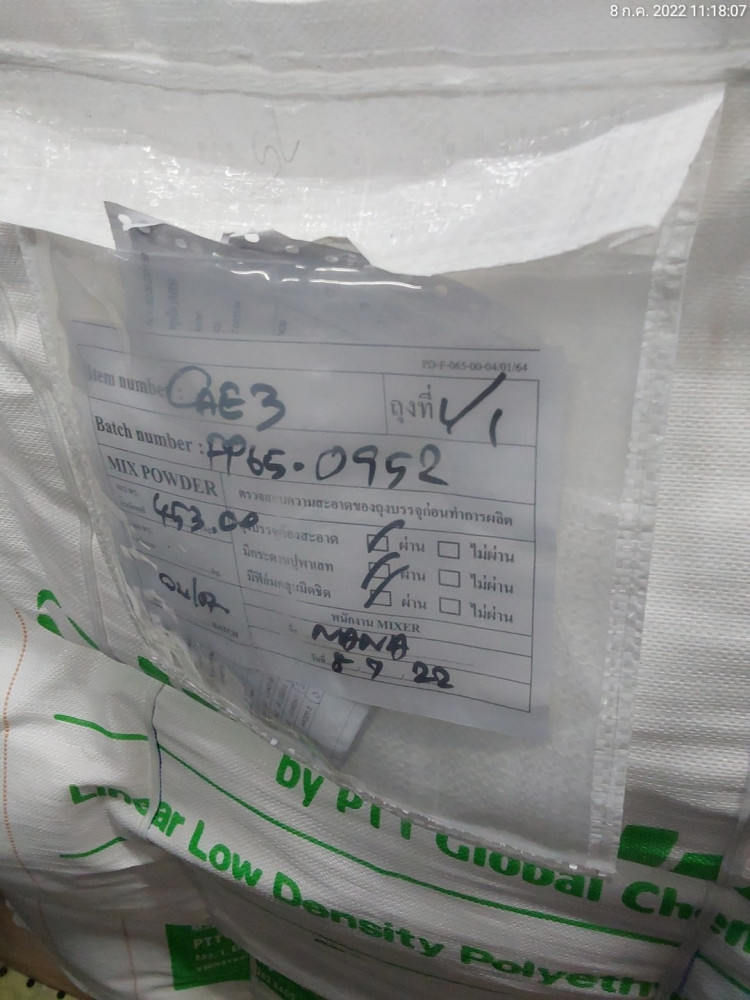 8 ก.ค. 2022 11:18:07
PD-F-065-00-04/01/64
Item number CAE3 ถุงที่ 1/1
Batch number : PP65-0952
MIX POWDER
ตรวจสอบความสะอาดของถุงบรรจุก่อนทำการผลิต
453.00
ถุงบรรจุต้องสะอาด ผ่าน ไม่ผ่าน
มีกระดาษปูพาเลท ผ่าน ไม่ผ่าน
มีฟิล์มคลุมมิดชิด ผ่าน ไม่ผ่าน
พนักงาน MIXER
BATCH
NANA
วันที่ 8 7 22
by PTT Global Chem
Linear Low Density Polyeth
PTT